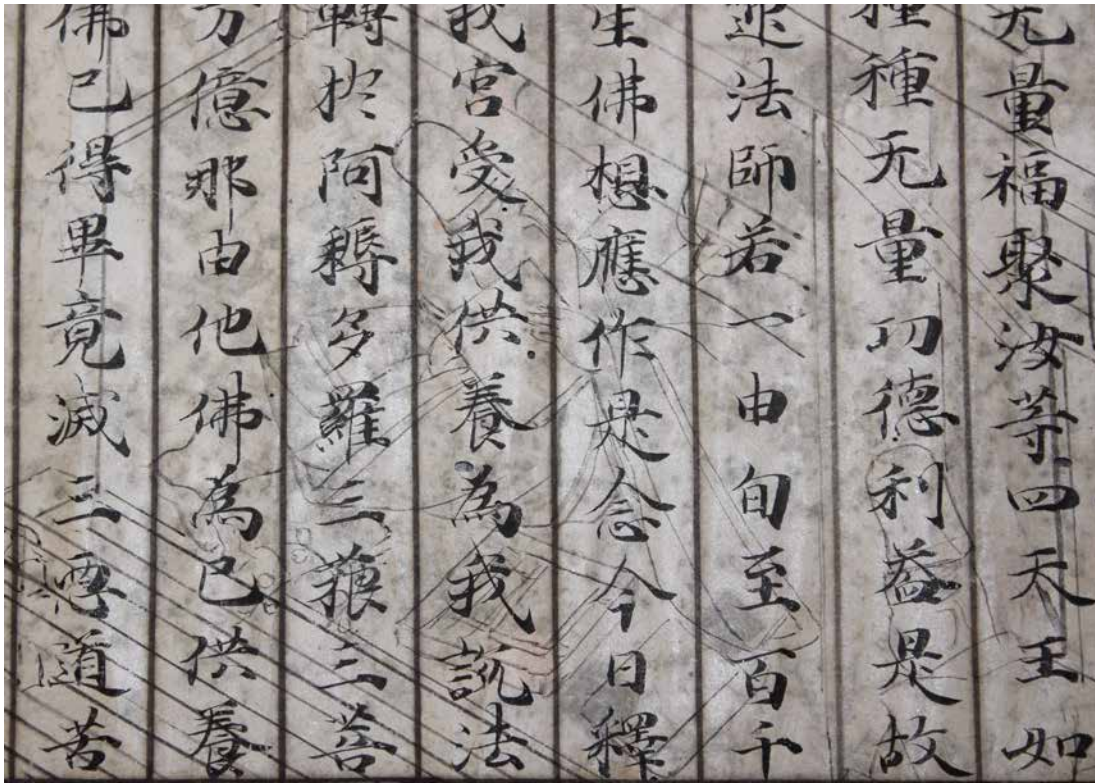 无量福聚汝等四天王如
種種无量功德利益是故
迎法師若一由旬至百千
生佛想應作是念今日釋
我宮受我供養為我說法
轉於阿耨多羅三藐三菩
万億那由他佛為已供養
佛已得畢竟滅三惡道苦